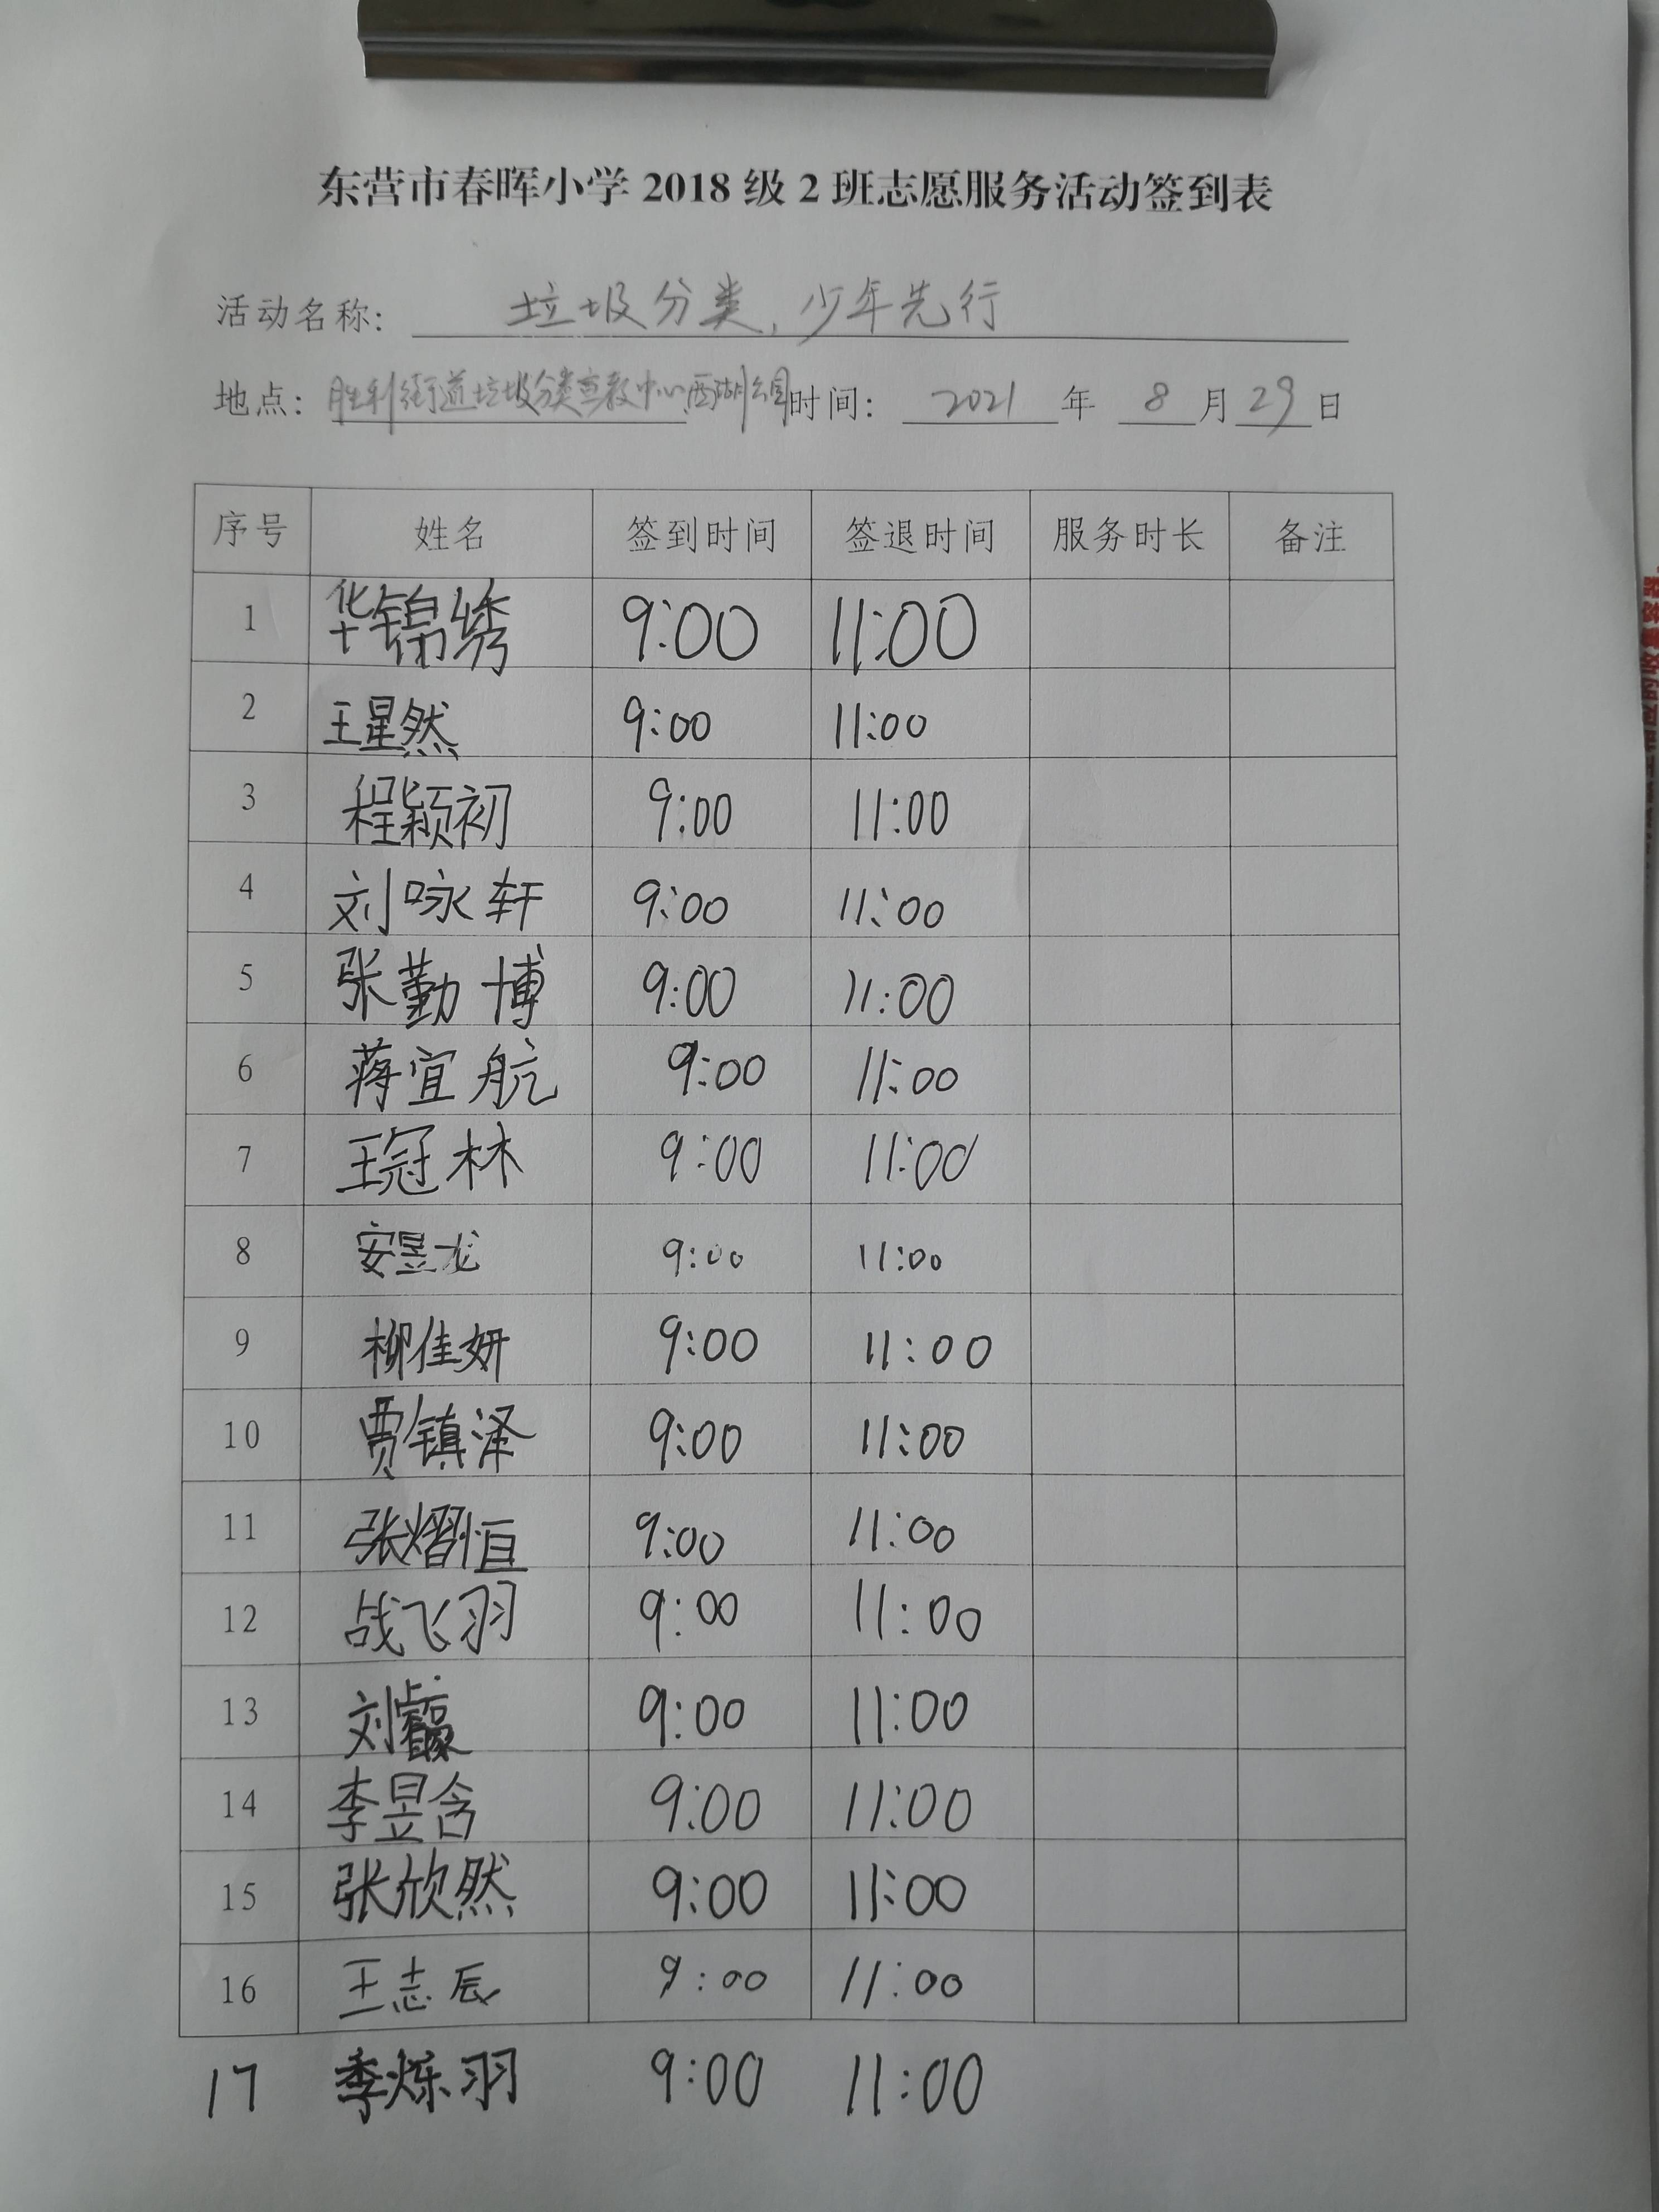 东营市春晖小学 2018 级 2 班志愿服务活动签到表
活动名称: 垃圾分类,少年先行
地点: 胜利街道垃圾分类宣教中心.西湖公园 时间: 2021 年 8 月 29 日
序号 姓名 签到时间 签退时间 服务时长 备注
1 华锦绣 9:00 11:00
2 王星然 9:00 11:00
3 程颖初 9:00 11:00
4 刘咏轩 9:00 11:00
5 张勤博 9:00 11:00
6 蒋宜航 9:00 11:00
7 王冠林 9:00 11:00
8 安昱龙 9:00 11:00
9 柳佳妍 9:00 11:00
10 贾镇泽 9:00 11:00
11 张熠恒 9:00 11:00
12 战飞羽 9:00 11:00
13 刘 9:00 11:00
14 李昱含 9:00 11:00
15 张欣然 9:00 11:00
16 王志辰 9:00 11:00
17 季烁羽 9:00 11:00